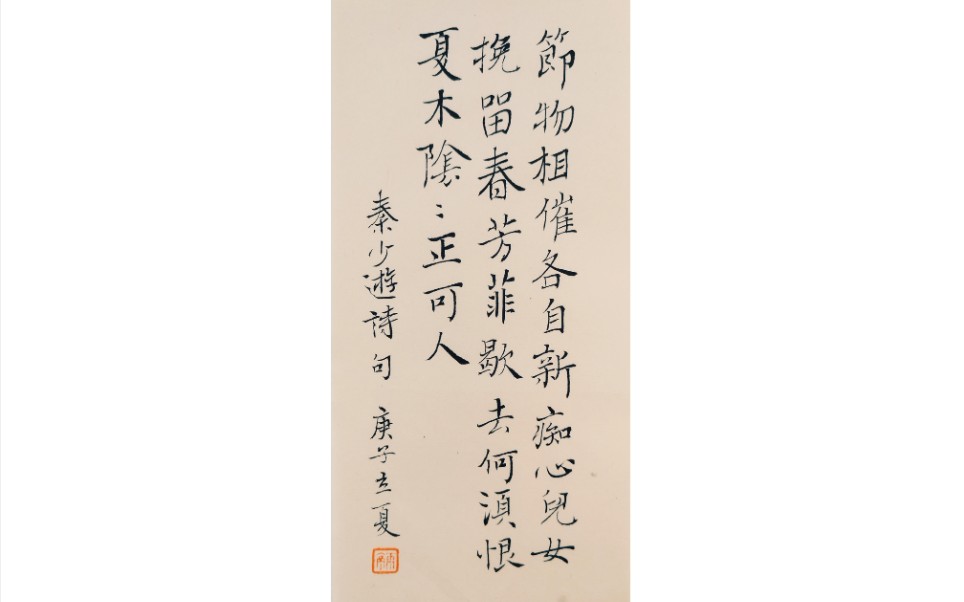 節物相催各自新痴心兒女
挽畱春芳菲歇去何湏恨
夏木陰〻正可人
秦少遊詩句 庚子立夏